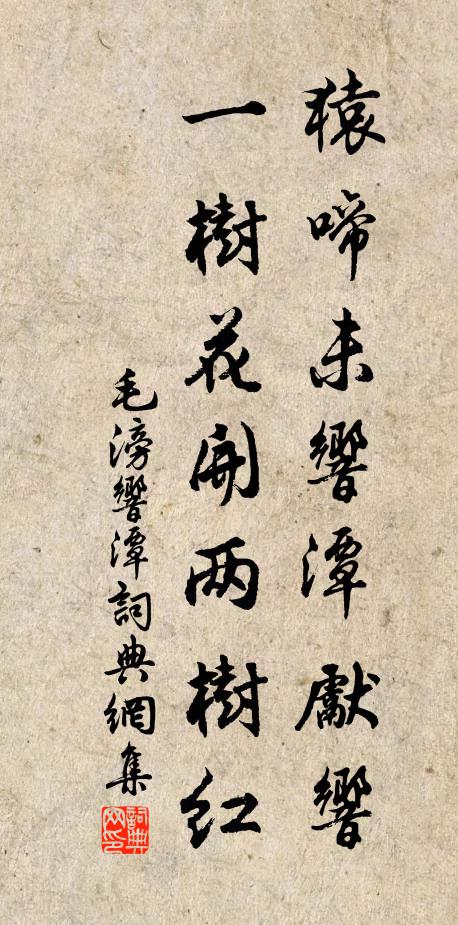 猿啼未響潭獻響
一樹花開两樹紅
毛滂響潭詞典網集
詞典網印